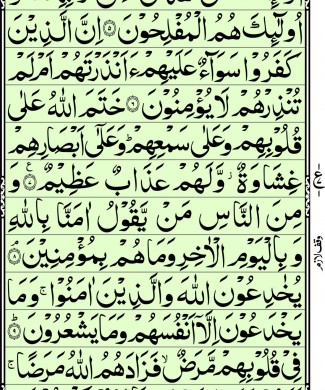 اُولٰٓئِكَ هُمُ الْمُفْلِحُوْنَ ۝ اِنَّ الَّذِيْنَ
كَفَرُوْا سَوَآءٌ عَلَيْهِمْ ءَاَنْذَرْتَهُمْ اَمْ لَمْ
تُنْذِرْهُمْ لَا يُؤْمِنُوْنَ ۝ خَتَمَ اللهُ عَلٰى
قُلُوْبِهِمْ وَعَلٰى سَمْعِهِمْ ؕ وَعَلٰٓى اَبْصَارِهِمْ
غِشَاوَةٌ ؗ وَّلَهُمْ عَذَابٌ عَظِيْمٌ ۝ وَ
مِنَ النَّاسِ مَنْ يَّقُوْلُ اٰمَنَّا بِاللهِ
وَ بِالْيَوْمِ الْاٰخِرِ وَمَا هُمْ بِمُؤْمِنِيْنَ ۝
يُخٰدِعُوْنَ اللهَ وَالَّذِيْنَ اٰمَنُوْا ۚ وَمَا
يَخْدَعُوْنَ اِلَّاۤ اَنْفُسَهُمْ وَمَا يَشْعُرُوْنَ ۝
فِيْ قُلُوْبِهِمْ مَّرَضٌ ۙ فَزَادَهُمُ اللهُ مَرَضًا ۚ
وقف لازم